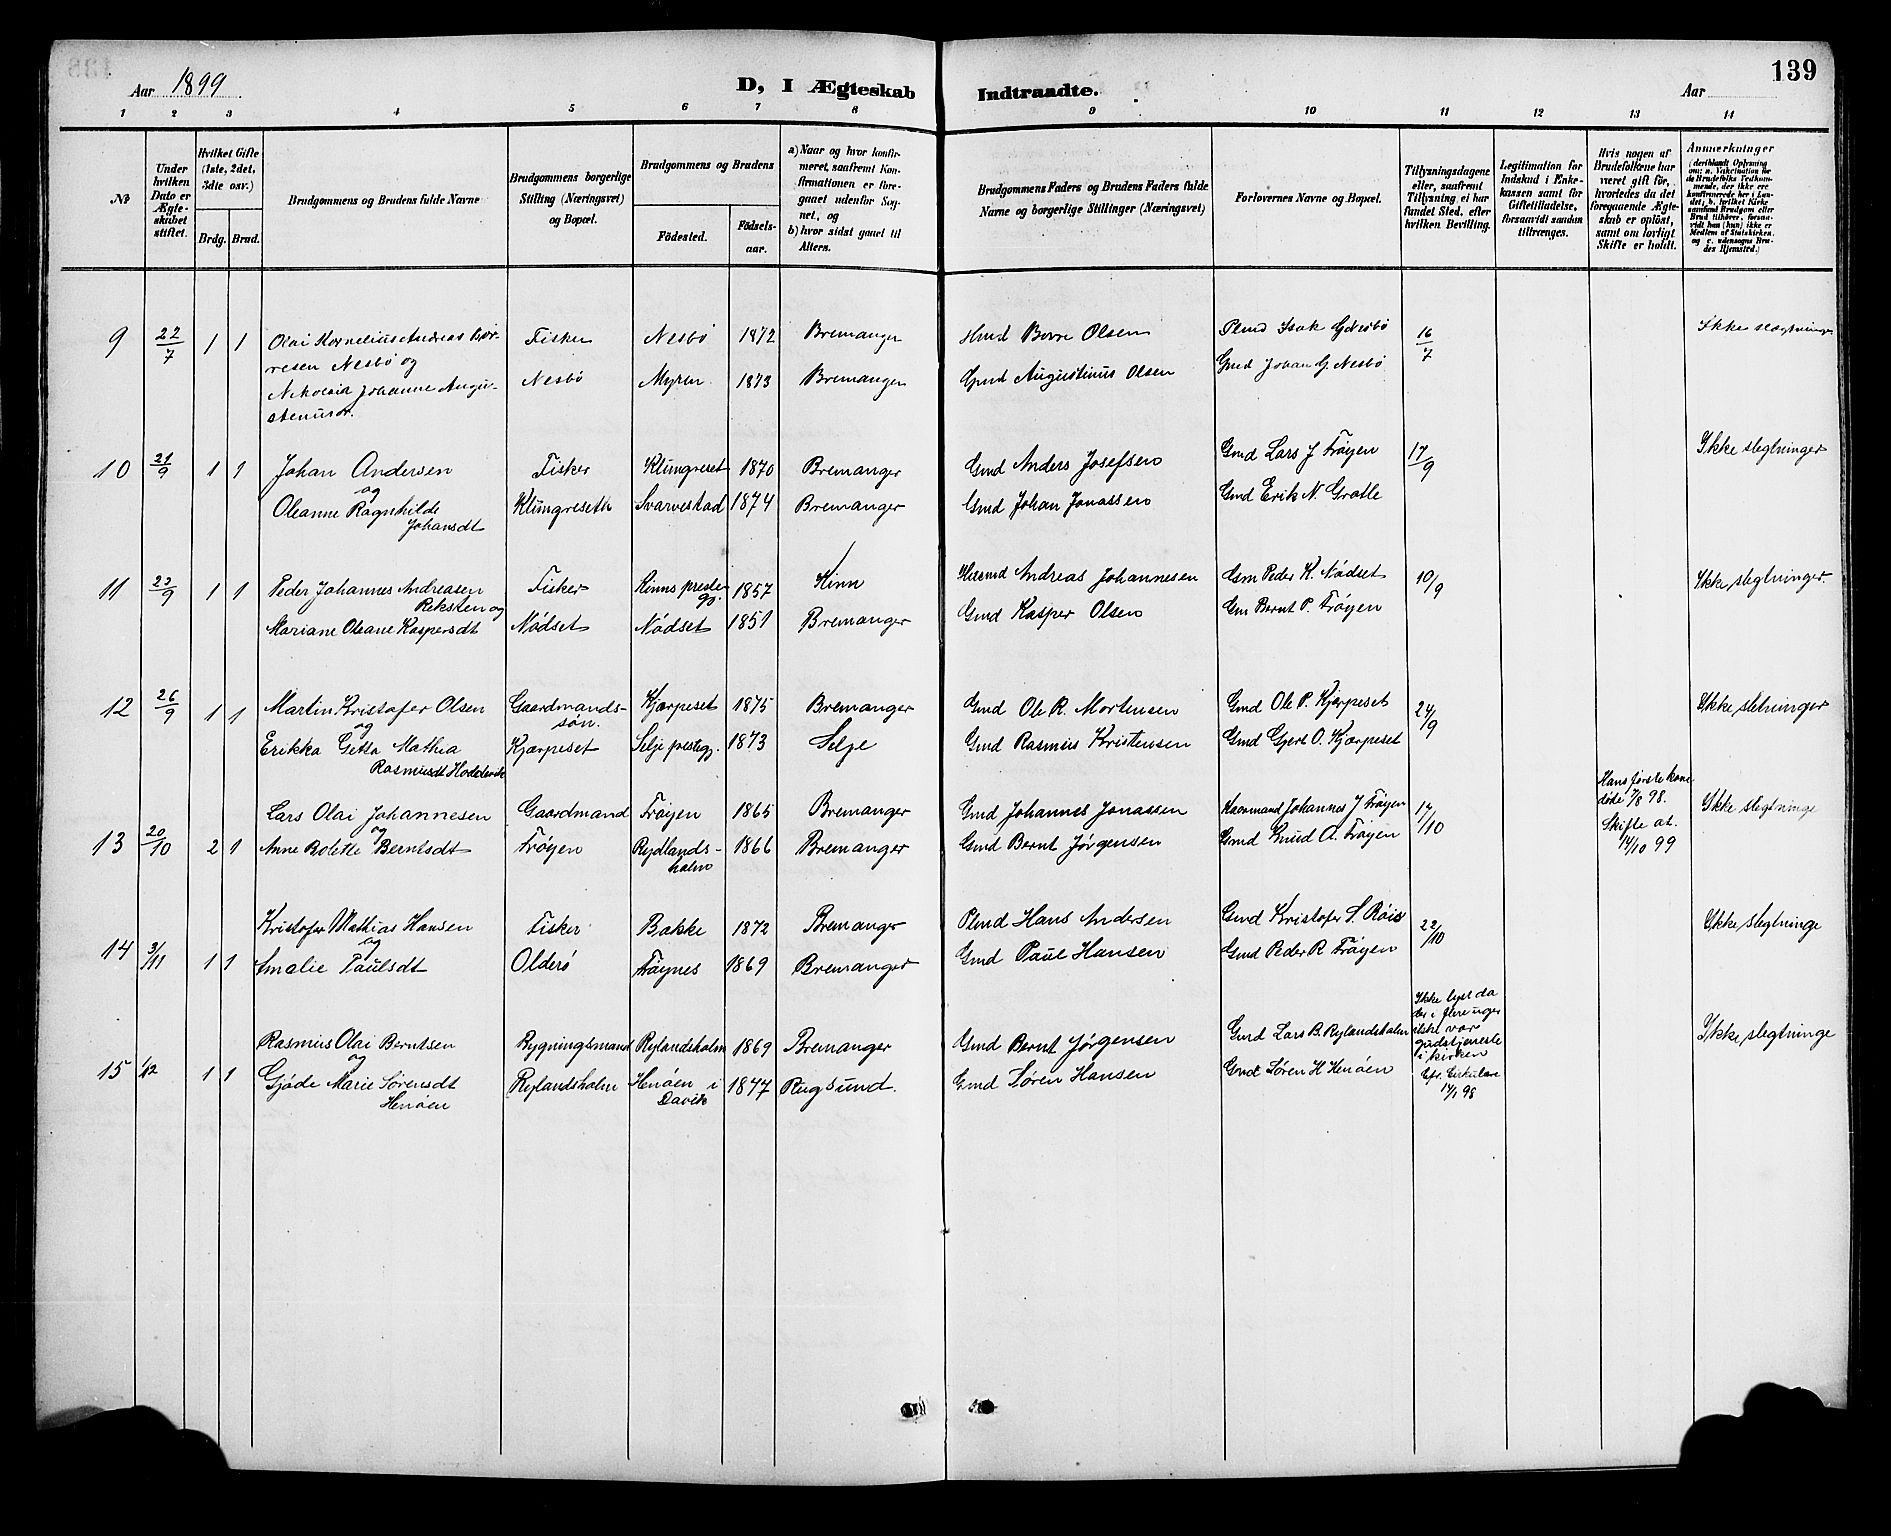 139
Aar 1899
D, I Ægteskab Indtraadte.
Aar
1 2 3 4 5 6 7 8 9 10 11 12 13 14
№
Under hvilken Dato er Ægteskabet stiftet.
Hvilket Gifte (1ste, 2det, 3die osv.)
Brdg. Brud.
Brudgommens og Brudens fulde Navne
Brudgommens borgerlige Stilling (Næringsvei) og Bopæl.
Brudgommens og Brudens
Födested. Födselsaar.
a) Naar og hvor konfirmeret, saafremt Konfirmationen er foregaaet udenfor Sognet, og
b) hvor sidst gaaet til Alters.
Brudgommens Faders og Brudens Faders fulde Navne og borgerlige Stillinger (Næringsvei)
Forlovernes Navne og Bopæl.
Tillysningsdagene eller, saafremt Tillysning ei har fundet Sted, efter hvilken Bevilling.
Legitimation for Indskud i Enkekassen samt for Giftetilladelse, forsaavidt saadan tiltrænges.
Hvis nogen af Brudefolkene har været gift för, hvorledes da det foregaaende Ægteskab er oplöst, samt om lovligt Skifte er holdt.
Anmærkninger
9 22/7 1 1 Olai Kornelius Andreas Børresen Nesbö og Fisker Nesbö 1872 Bremanger Hmd Børre Olsen Plmd Isak G Nesbö 16/7 Ikke slegtninger
Nikolaia Johanne Augustenusdr. Nesbö Myren 1873 Bremanger Gmd Augustinus Olsen Gmd Johan G. Nesbö
10 21/9 1 1 Johan Andersen Fisker Klungreset 1870 Bremanger Gmd Anders Josefsen Gmd Lars J Fröyen 17/9 Ikke slegtninger
og
Oleanne Ragnhilde Johansdt Klungreseth Svarvestad 1874 Bremanger Gmd Johan Jonassen Gmd Erik N. Grotle
11 23/9 1 1 Peder Johannes Andreasen Reksten og Fisker Kinns prestegj. 1857 Kinn Husmd Andreas Johannesen Gm Peder K. Nödset 10/9 Ikke slegtninger.
Mariane Oleane Kaspersdt Nödset Nödset 1851 Bremanger Gmd Kasper Olsen Gm Bernt P. Fröyen
12 26/9 1 1 Martin Kristofer Olsen Gaardmandssön. Kjærpeset 1875 Bremanger Gmd Ole R. Mortensen Gmd Ole P. Kjærpeset 24/9 Ikke sletninger
og
Erikka Getta Mathea Rasmusdt Hoddevik Kjærpeset Selje prestegj. 1873 Selje Gmd Rasmus Kristensen Gmd Gjert O. Kjærpeset
13 20/10 2 1 Lars Olai Johannesen Gaardmand Fröyen 1865 Bremanger Gmd Johannes Jonassen Kaarmand Johannes J Fröyen 17/10 Hans förste kone döde 7/8 98. Skifte at. 14/10 99 Ikke slegtninge
og
Anne Bolette Berntsdt Fröyen Rydlandsholm 1866 Bremanger Gmd Bernt Jörgensen Gmd Knud A. Fröyen
14 3/11 1 1 Kristofer Mathias Hansen Fisker Bakke 1872 Bremanger Plmd Hans Andersen Gmd Kristofer S. Röis 22/10 Ikke slegtninge
og
Amalie Paulsdt Olderö Fröynes 1869 Bremanger Gmd Paul Hansen Gmd Peder R Fröyen
15 1/12 1 1 Rasmus Olai Berntsen Bygningsmand Rylandsholm 1869 Bremanger Gmd Bernt Jörgensen Gmd Lars B. Rylandsholm Ikke lyst da der i flere uger ikke var gudstjeneste i kirken Cfr. Cirkulære 14/1 98 Ikke slegtninge
og
Gjöde Marie Sörensdt Henöen Rylandsholm Henöen i Davik 1877 Rugsund. Gmd Sören Hansen Gmd Sören H Henöen